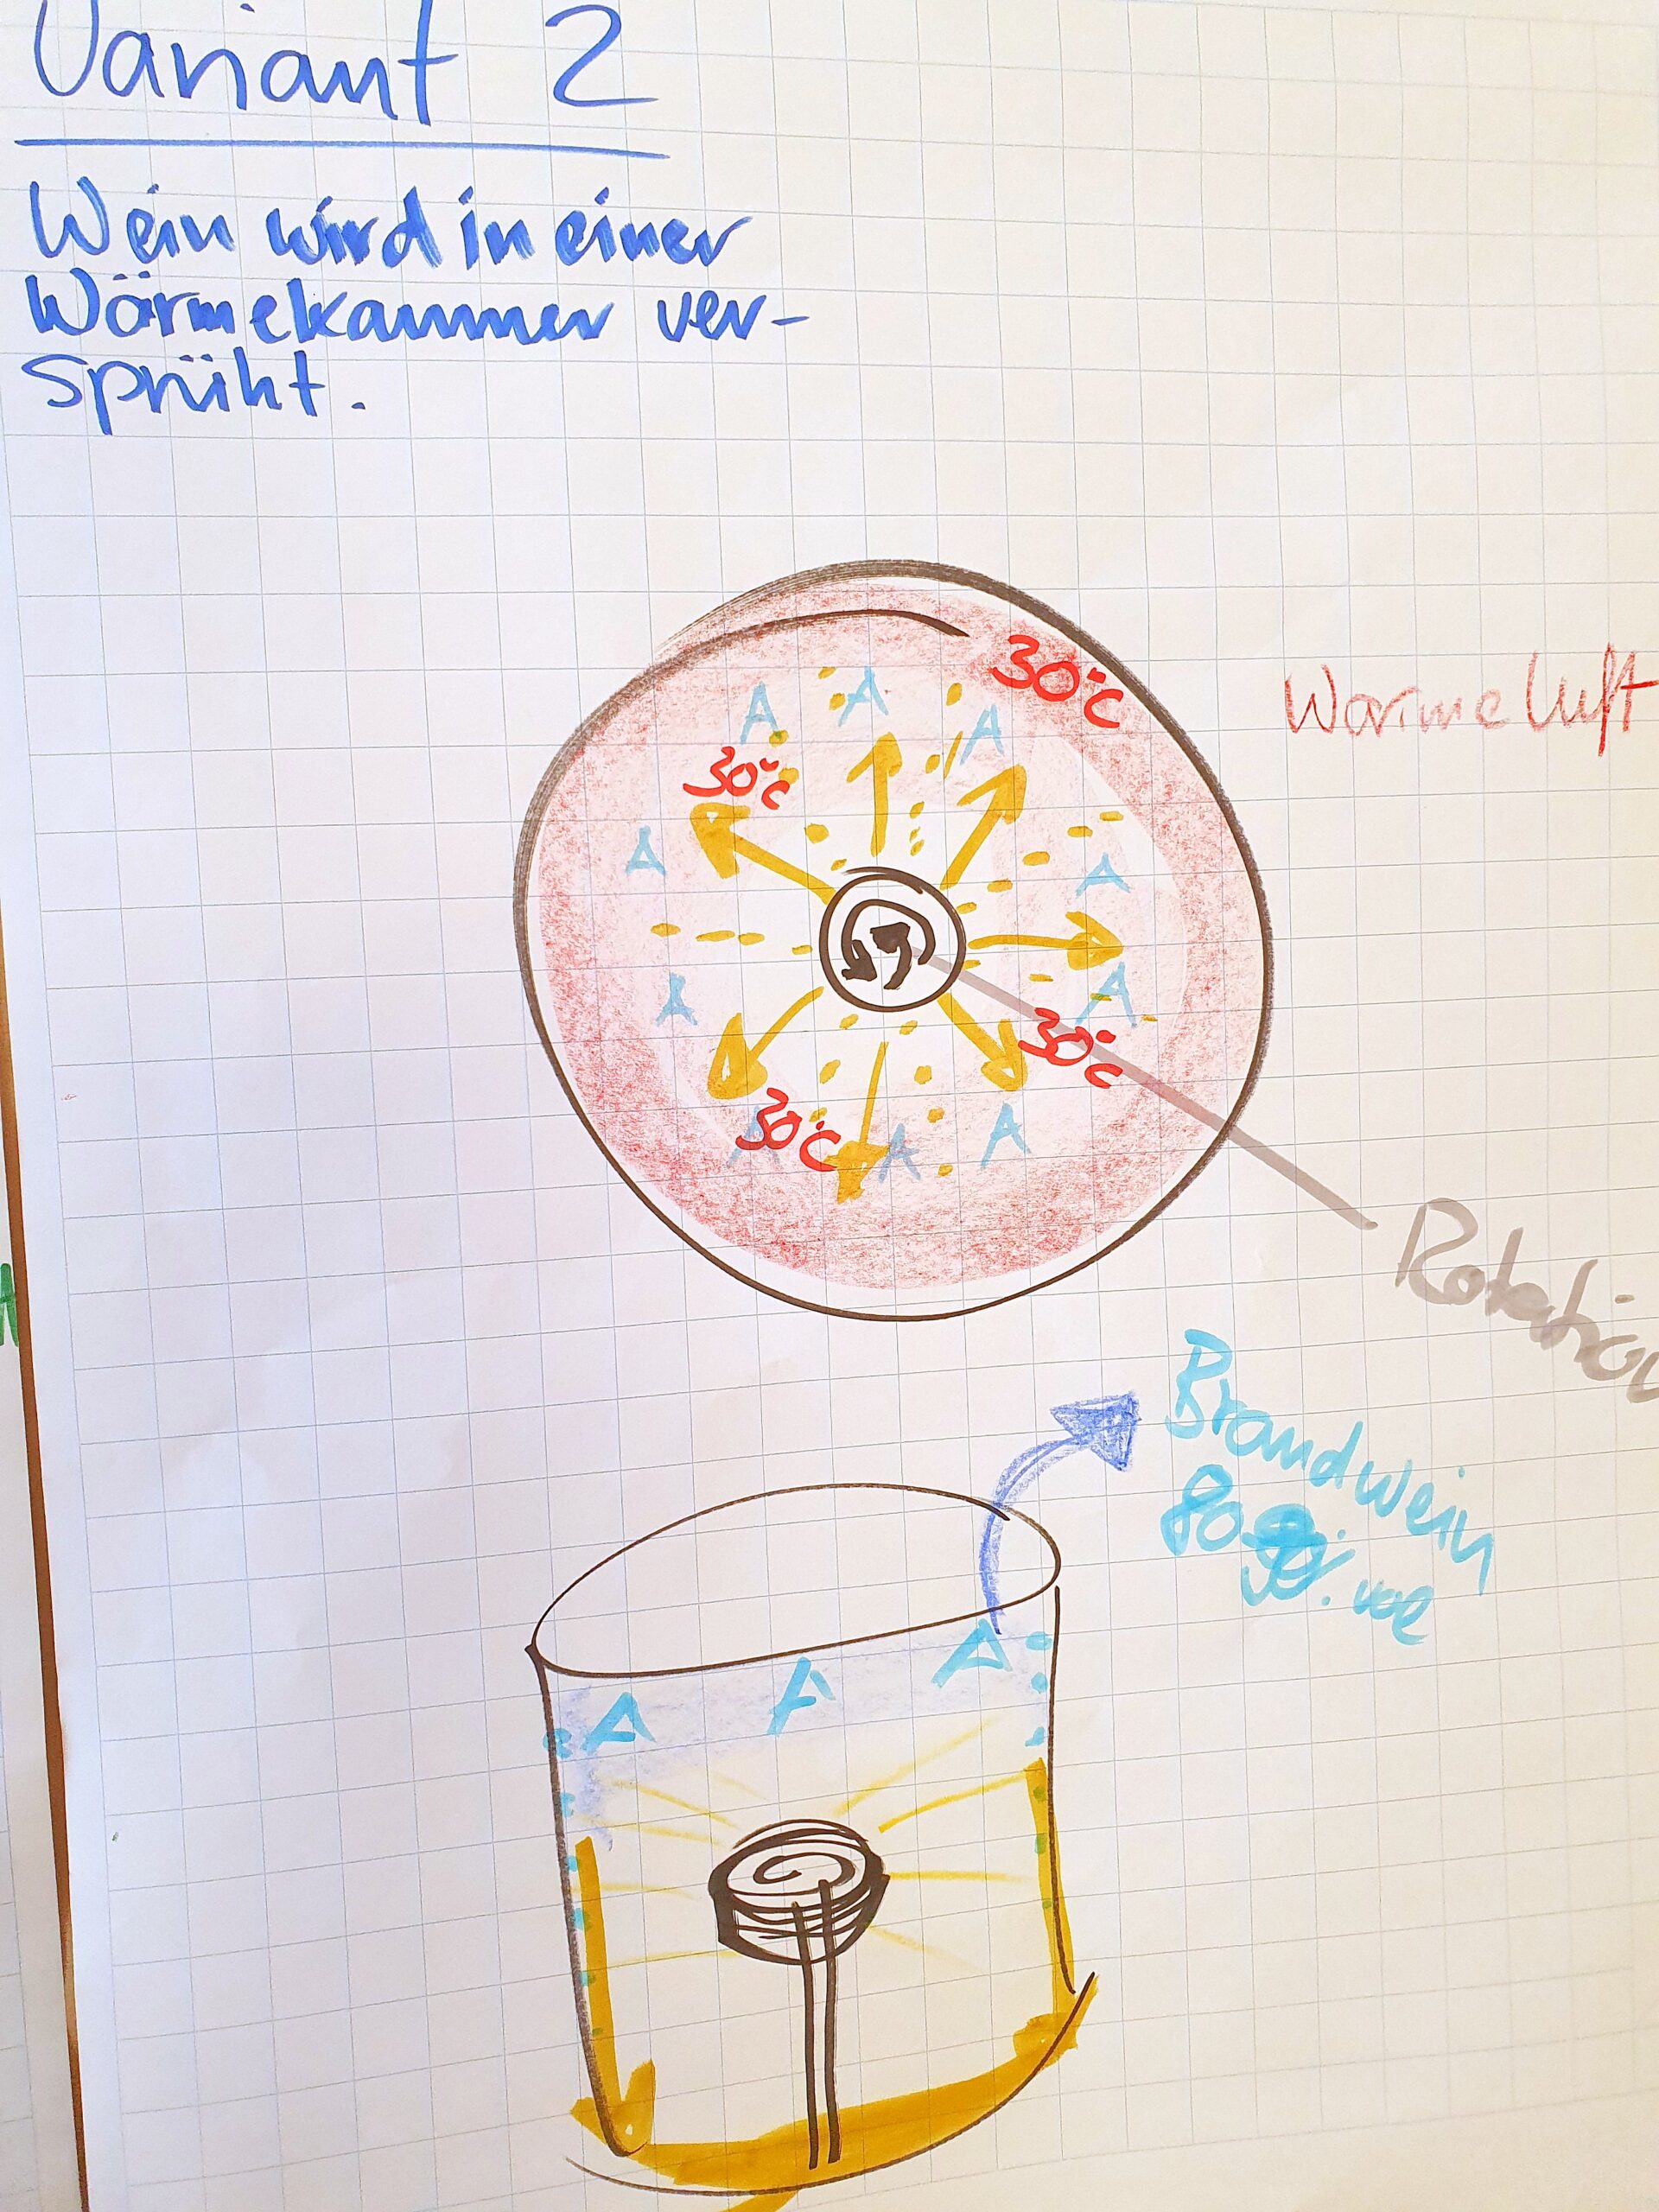 Variant 2
Wein wird in einer
Wärmekammer ver-
sprüht.
A
A
A
30°C
Warme Luft
30°C
A
A
A
A
30°C
30°C
A
A
A
Rotation
Brandwein
80%. vol
A
A
A